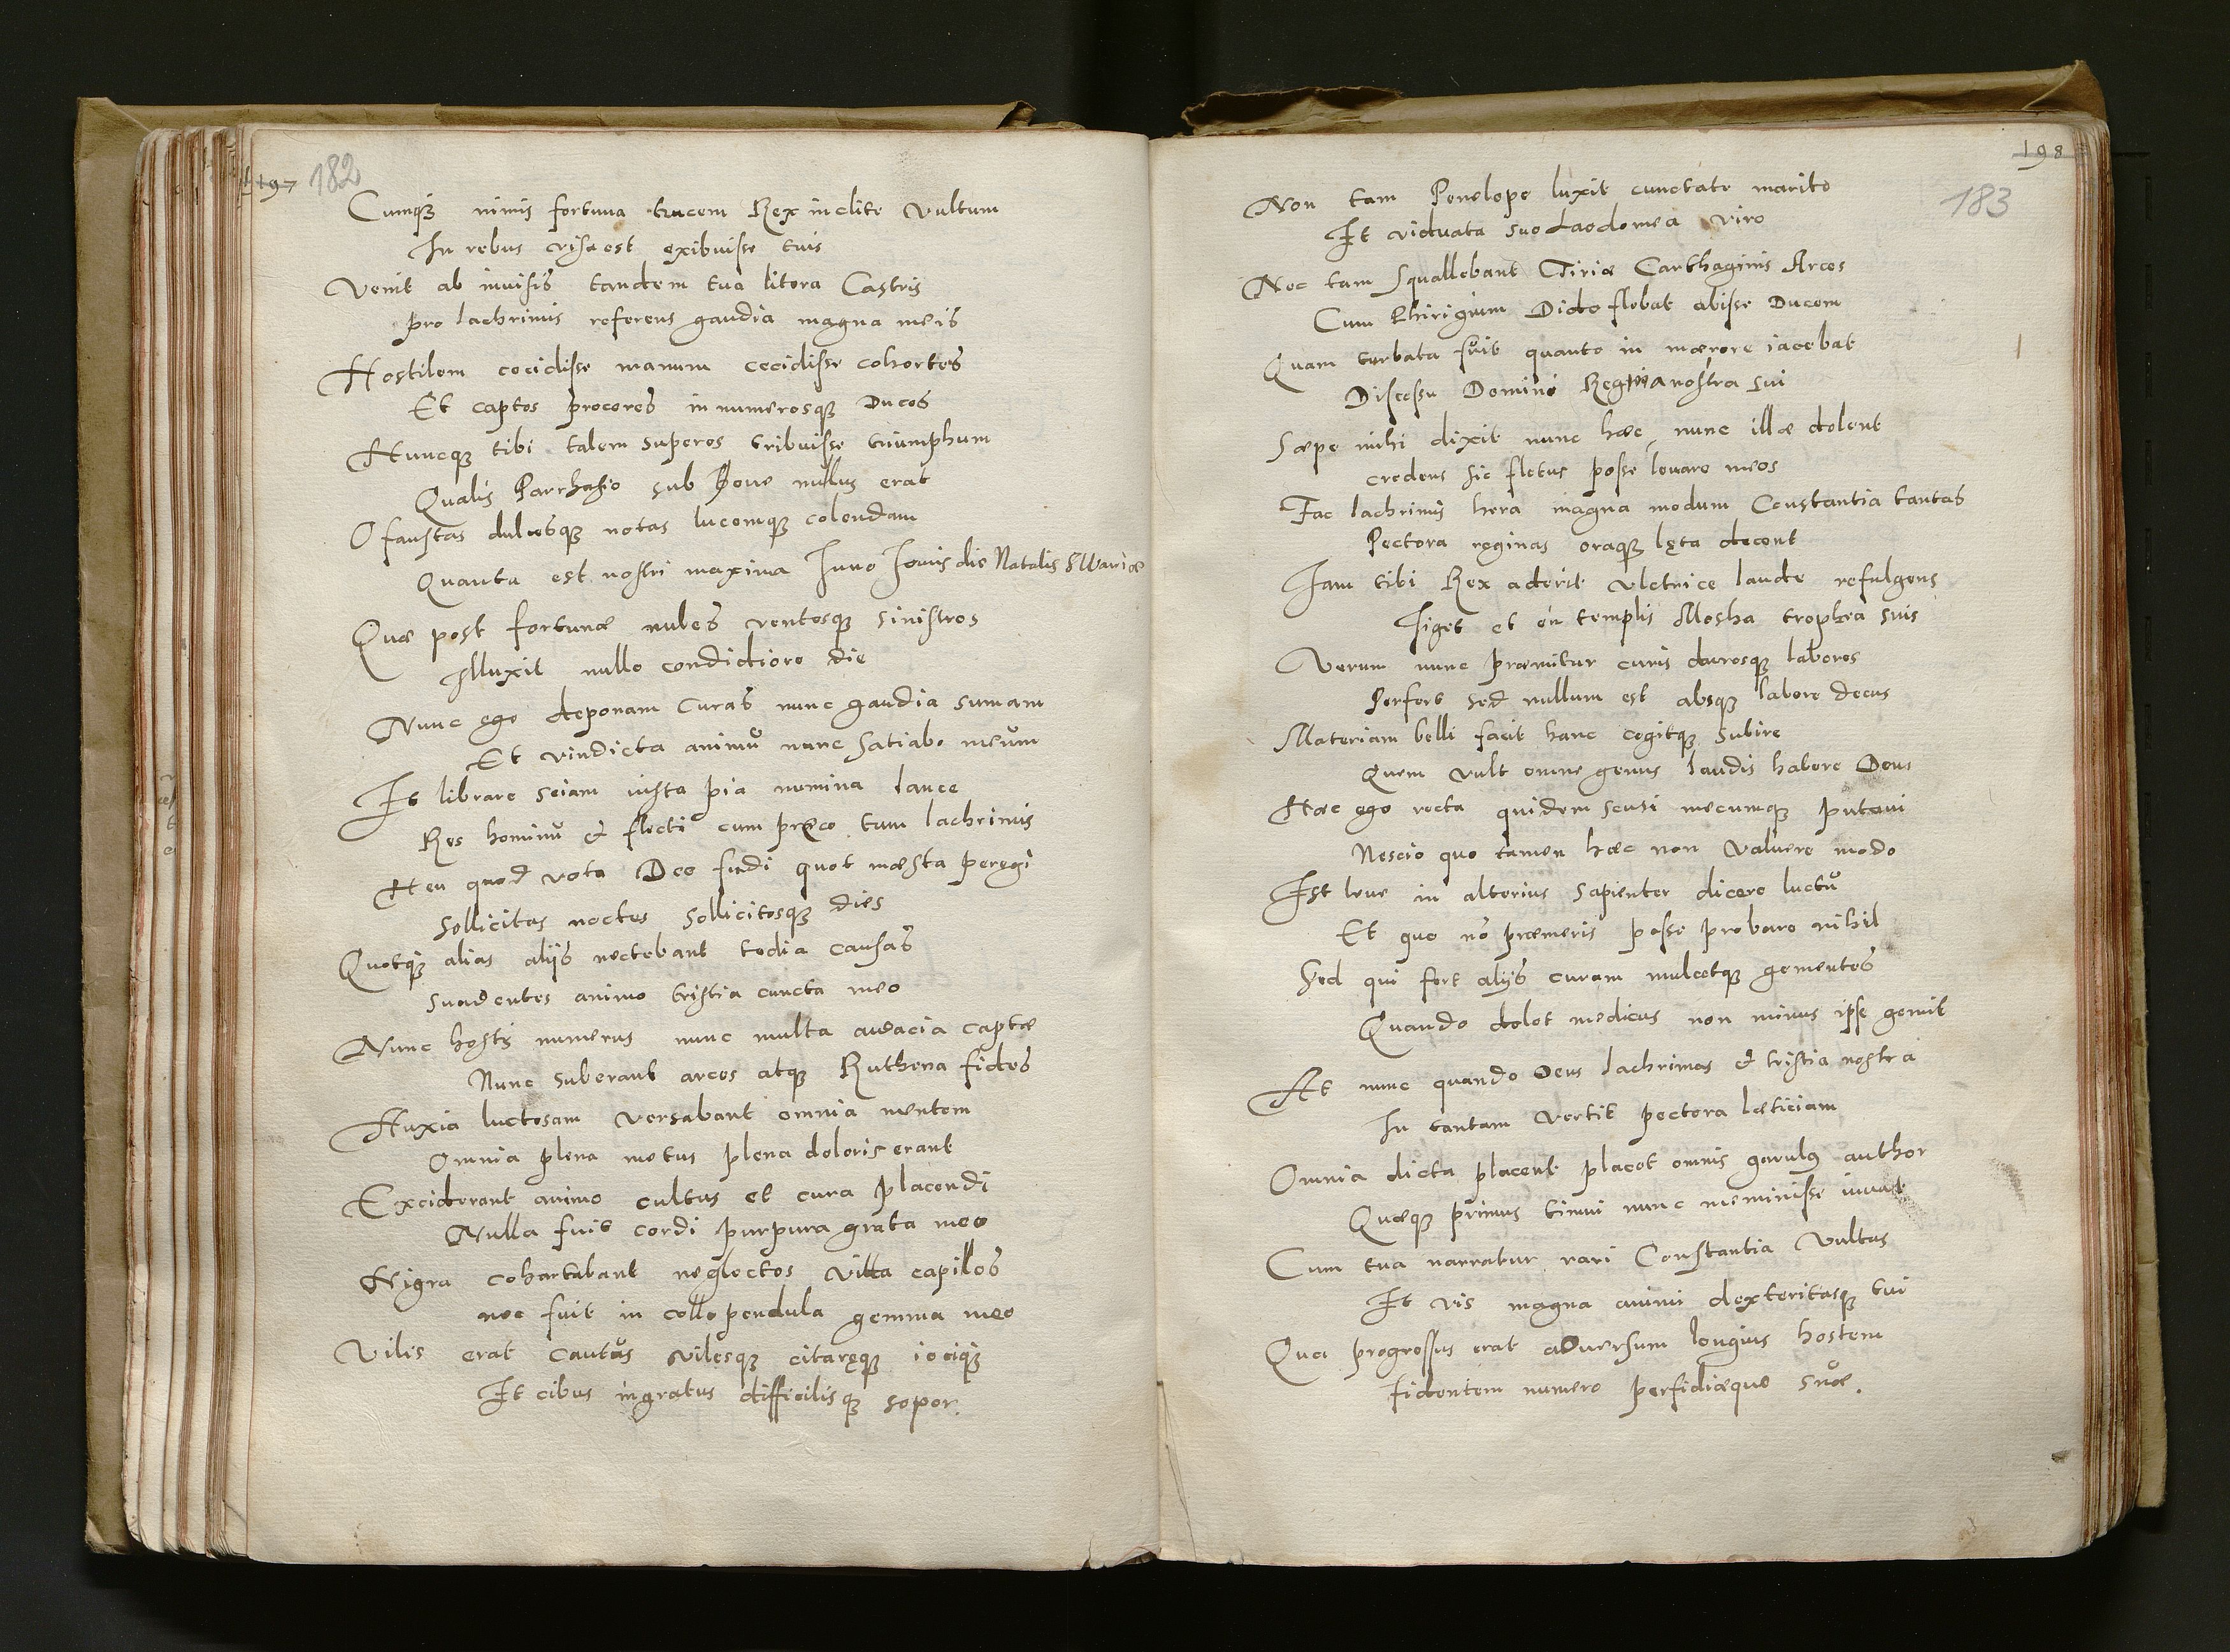 197 182
Cumq; nimis fortuna trucem Rex inclite vultum
In rebus visa est exibuisse tuis
Venit ab invisis tandem tua litera Castris
pro lachrimis referens gaudia magna meis
Hostilem cecidisse manum cecidisse cohortes
Et captos proceres innumerosq; Duces
Huncq; tibi talem superos tribuisse triumphum
Qualis Parrhasio sub Ioue nullus erat
O faustas dulcesq; notas lucemq; colendam
Quanta est nostri maxima Iuno Iouis die Natalis S Mariæ
Quæ post fortunæ nubes ventosq; sinistros
Illuxit nullo condictiore die
Nunc ego deponam curas nunc gaudia sumam
Et vindicta animū nunc satiabo meūm
Et librare sciam iusta pia numina lance
Res hominū & flecti cum prece tum lachrimis
Heu quod vota Deo fudi quot mæsta peregi
Sollicitas noctes sollicitosq; dies
Quotq; alias aliis nectebant tedia causas
Suadentes animo tristia cuncta meo
Nunc hostis numerus nunc multa audacia captæ
Nunc suberant arces atq; Ruthena fides
Anxia luctosam versabant omnia mentem
Omnia plena metus plena doloris erant
Exciderant animo cultus et cura placendi
Nulla fuit cordi purpura grata meo
Nigra cohartabant neglectos vitta capillos
nec fuit in collo pendula gemma meo
Vilis erat cantūs vilesq; citaręq; iociq;
Et cibus ingratus difficilisq; sopor.
198
183
Non tam Penelope luxit cunctate marito
Et viduata suo Laodomea viro
Nec tam squallebant Tiriæ Carthaginis Arces
Cum Phirigium Dido flebat abisse Ducem
Quam turbata fuit quanto in mærore iacebat
Discessu Domini Regina nostra sui
Sæpe mihi dixit nunc hæc nunc illæ dolent
credens sic fletus posse levare meos
Fac lachrimis hera magna modum Constantia tantas
Pectora reginas oraq; lęta decent
Iam tibi Rex aderit vletrice laude refulgens
Figet et en templis Mosha trophea suis
Verum nunc præmitur curis durosq; labores
Perfert sed nullum est absq; labore decus
Materiam belli facit hanc cogitq; subire
Quem vult omne genus laudis habere Deus
Hæc ego recta quidem sensi mecumq; putaui
Nescio quo tamen hæc non valuere modo
Est leue in alterius sapienter dicere luctū
Et quo nō præmeris posse probare nihil
Sed qui fert aliis curam mulcetq; gementes
Quando dolet medicus non minus ipse gemit
At nunc quando Deus lachrimas & tristia nostra
In tantam vertit pectora læticiam
Omnia dicta placent placet omnis garulus author
Quæq; primus timui nunc meminisse iuuat
Cum tua narratur rari Constantia vultus
Et vis magna animi dexteritasq; tui
Qua progressus erat aduersum longius hostem
fidentem numero perfidiæque suæ.